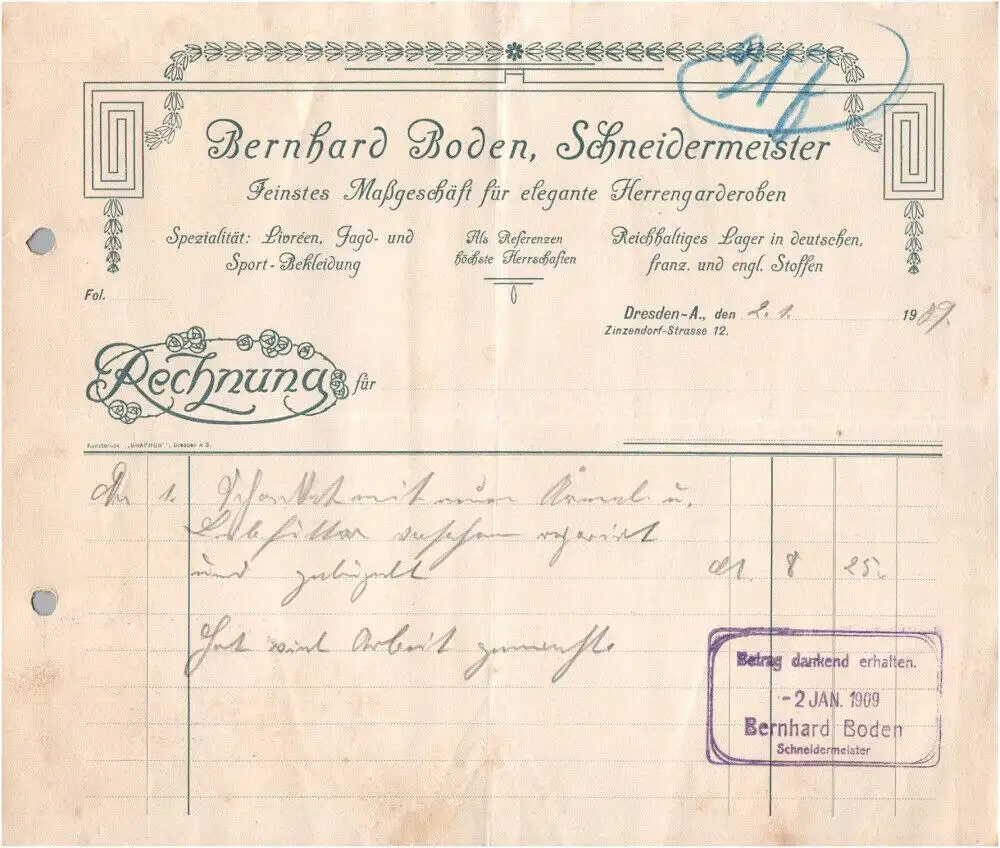 21 f
Bernhard Boden, Schneidermeister
Feinstes Maßgeschäft für elegante Herrengarderoben
Spezialität: Livréen, Jagd- und
Sport-Bekleidung
Als Referenzen
höchste Herrschaften
Reichhaltiges Lager in deutschen,
franz. und engl. Stoffen
Fol.
Dresden-A., den 2. 1. 1909.
Zinzendorf-Strasse 12.
Rechnung für
Kunstdruck „GRAPHOS", Dresden A 3.
1. mit neuen Ärmel u.
repariert
und gebügelt M. 8 25.
Hat viel Arbeit gemacht.
Betrag dankend erhalten.
-2 JAN. 1909
Bernhard Boden
Schneidermeister